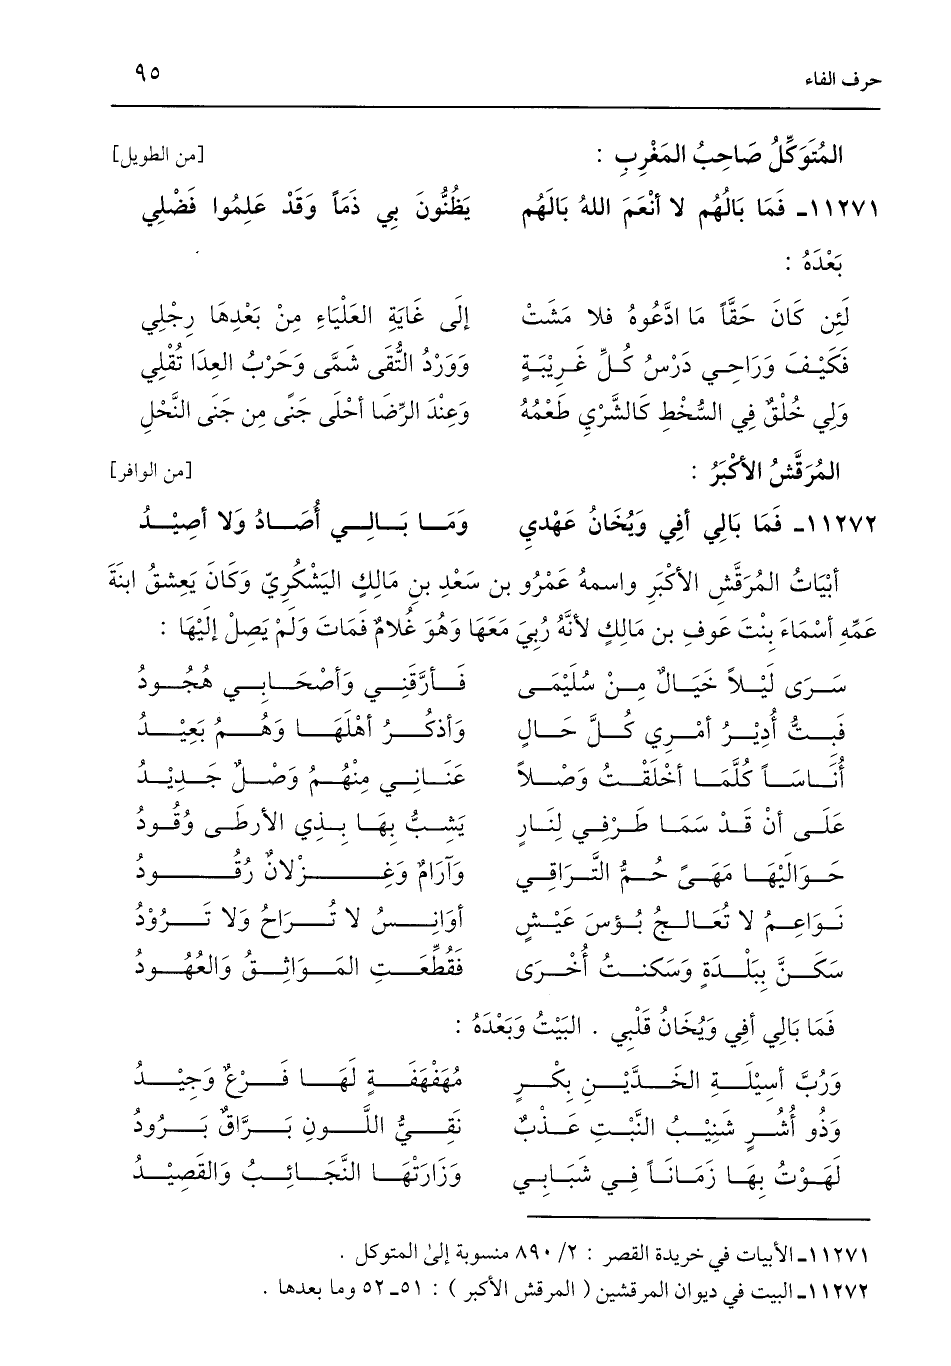 حرف الفاء ٩٥
المُتَوَكِّلُ صَاحِبُ المَغْرِبِ : [من الطويل]
١١٢٧١ـ فَمَا بَالُهُم لا أنْعَمَ اللهُ بَالَهُم يَظُنُّونَ بِي ذَمّاً وَقَدْ عَلِمُوا فَضْلِي
بَعْدَهُ :
لَئِن كَانَ حَقّاً مَا ادَّعُوهُ فلا مَشَتْ إلَى غَايَةِ العَلْيَاءِ مِنْ بَعْدِهَا رِجْلِي
فَكَيْفَ وَرَاحِي دَرْسُ كُلِّ غَرِيْبَةٍ وَوَرْدُ التُّقَى شَمَّى وَحَرْبُ العِدَا تُقْلِي
وَلِي خُلْقٌ فِي السُّخْطِ كَالشَّرْيِ طَعْمُهُ وَعِنْدَ الرِّضَا أحْلَى جَنًى مِن جَنَى النَّحْلِ
المُرَقَّشُ الأكْبَرُ : [من الوافر]
١١٢٧٢ـ فَمَا بَالِي أفِي وَيُخَانُ عَهْدِي وَمَا بَالِي أُصَادُ وَلا أصِيْدُ
أبْيَاتُ المُرَقَّشِ الأكْبَرِ واسمهُ عَمْرُو بن سَعْدِ بنِ مَالِكٍ اليَشْكُرِيّ وَكَانَ يَعشقُ ابنَةَ
عَمِّهِ أسْمَاءَ بِنْتَ عَوفِ بن مَالِكٍ لأنَّهُ رُبِيَ مَعَهَا وَهُوَ غُلامٌ فَمَاتَ وَلَمْ يَصِلْ إلَيْهَا :
سَرَى لَيْلاً خَيَالٌ مِنْ سُلَيْمَى فَأرَّقَنِي وَأصْحَابِي هُجُودُ
فَبِتُّ أُدِيْرُ أمْرِي كُلَّ حَالٍ وَأذكُرُ أهْلَهَا وَهُمُ بَعِيْدُ
أُنَاسَاً كُلَّمَا أخْلَقْتُ وَصْلاً عَنَانِي مِنْهُمُ وَصْلٌ جَدِيْدُ
عَلَى أنْ قَدْ سَمَا طَرْفِي لِنَارٍ يَشِبُّ بِهَا بِذِي الأرطَى وُقُودُ
حَوَالَيْهَا مَهَىً حُمُّ التَّرَاقِي وَآرَامٌ وَغِزْلانٌ رُقُودُ
نَوَاعِمُ لا تُعَالِجُ بُؤسَ عَيْشٍ أوَانِسُ لا تُرَاحُ وَلا تَرُوْدُ
سَكَنَّ بِبَلْدَةٍ وَسَكنتُ أُخْرَى فَقُطِّعَتِ المَوَاثِقُ وَالعُهُودُ
فَمَا بَالِي أفِي وَيُخَانُ قَلْبِي . البَيْتُ وَبَعْدَهُ :
وَرُبَّ أسِيْلَةِ الخَدَّيْنِ بِكْرٍ مُهَفْهَفَةٍ لَهَا فَرْعٌ وَجِيْدُ
وَذُو أُشُرٍ شَنِيْبُ النَّبْتِ عَذْبٌ نَقِيُّ اللَّونِ بَرَّاقٌ بَرُودُ
لَهَوْتُ بِهَا زَمَانَاً فِي شَبَابِي وَزَارَتْهَا النَّجَائِبُ وَالقَصِيْدُ
١١٢٧١ـ الأبيات في خريدة القصر : ٢/ ٨٩٠ منسوبة إلىٰ المتوكل .
١١٢٧٢ـ البيت في ديوان المرقشين ( المرقش الأكبر ) : ٥١ـ ٥٢ وما بعدها .